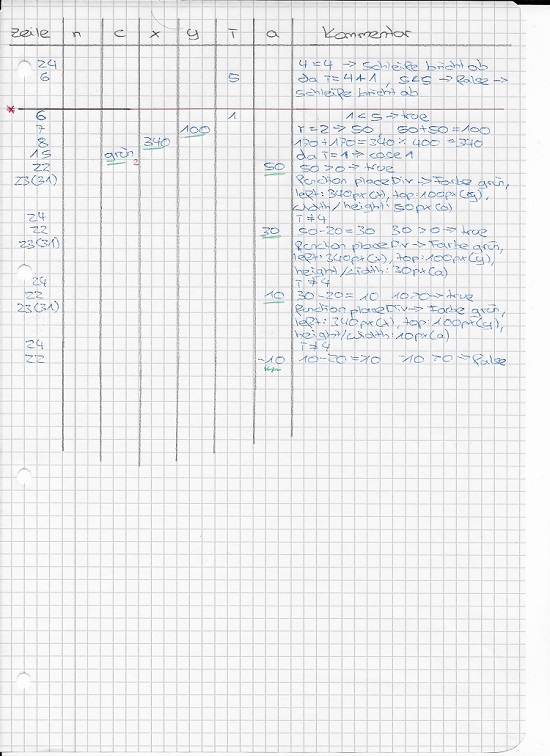 Zeile n c x y i a Kommentar
24 4=4 → Schleife bricht ab
6 5 da i=4+1, 5<5 → false →
Schleife bricht ab
* 6 1 1<5 → true
7 100 r=2 → 50, 50+50=100
8 340 170+170=340 % 400=340
15 grün da i=1 → case 1
22 50 50>0 → true
23(31) Function placeDiv → Farbe grün,
left: 340px(x), top: 100px(y),
width/height: 50px(a)
24 i≠4
22 30 50-20=30 30>0 → true
23(31) Function placeDiv → Farbe grün,
left: 340px(x), top: 100px(y),
height/width: 30px(a)
24 i≠4
22 10 30-20=10 10>0 → true
23(31) Function placeDiv → Farbe grün,
left: 340px(x), top: 100px(y),
height/width: 10px(a)
24 i≠4
22 -10 10-20=-10 -10>0 → false